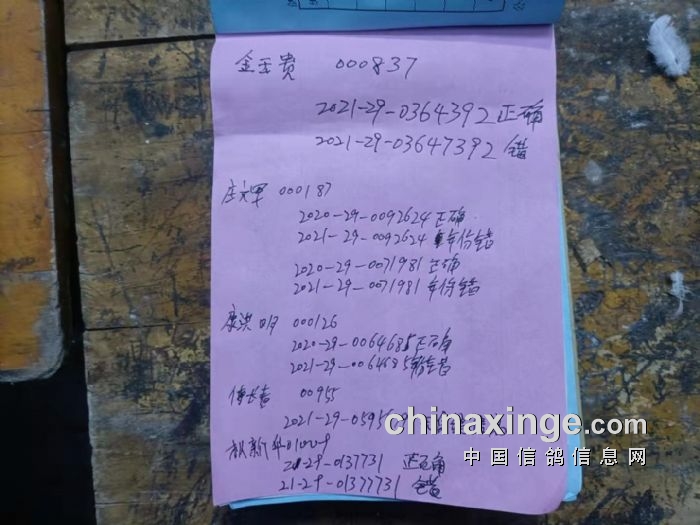 金玉贵 000837
2021-29-0364392 正确
2021-29-03647392 错
000187
2020-29-0092624 正确
2021-29-0092624 年份错
2020-29-0071981 正确
2021-29-0071981 年份错
康洪明 000126
2020-29-0064685 正确
2021-29-0064685 错
00955
2021-29-0595
新华
21-29-0137731 正确
21-29-01377731 错
chinaxinge.com
中国信鸽信息网